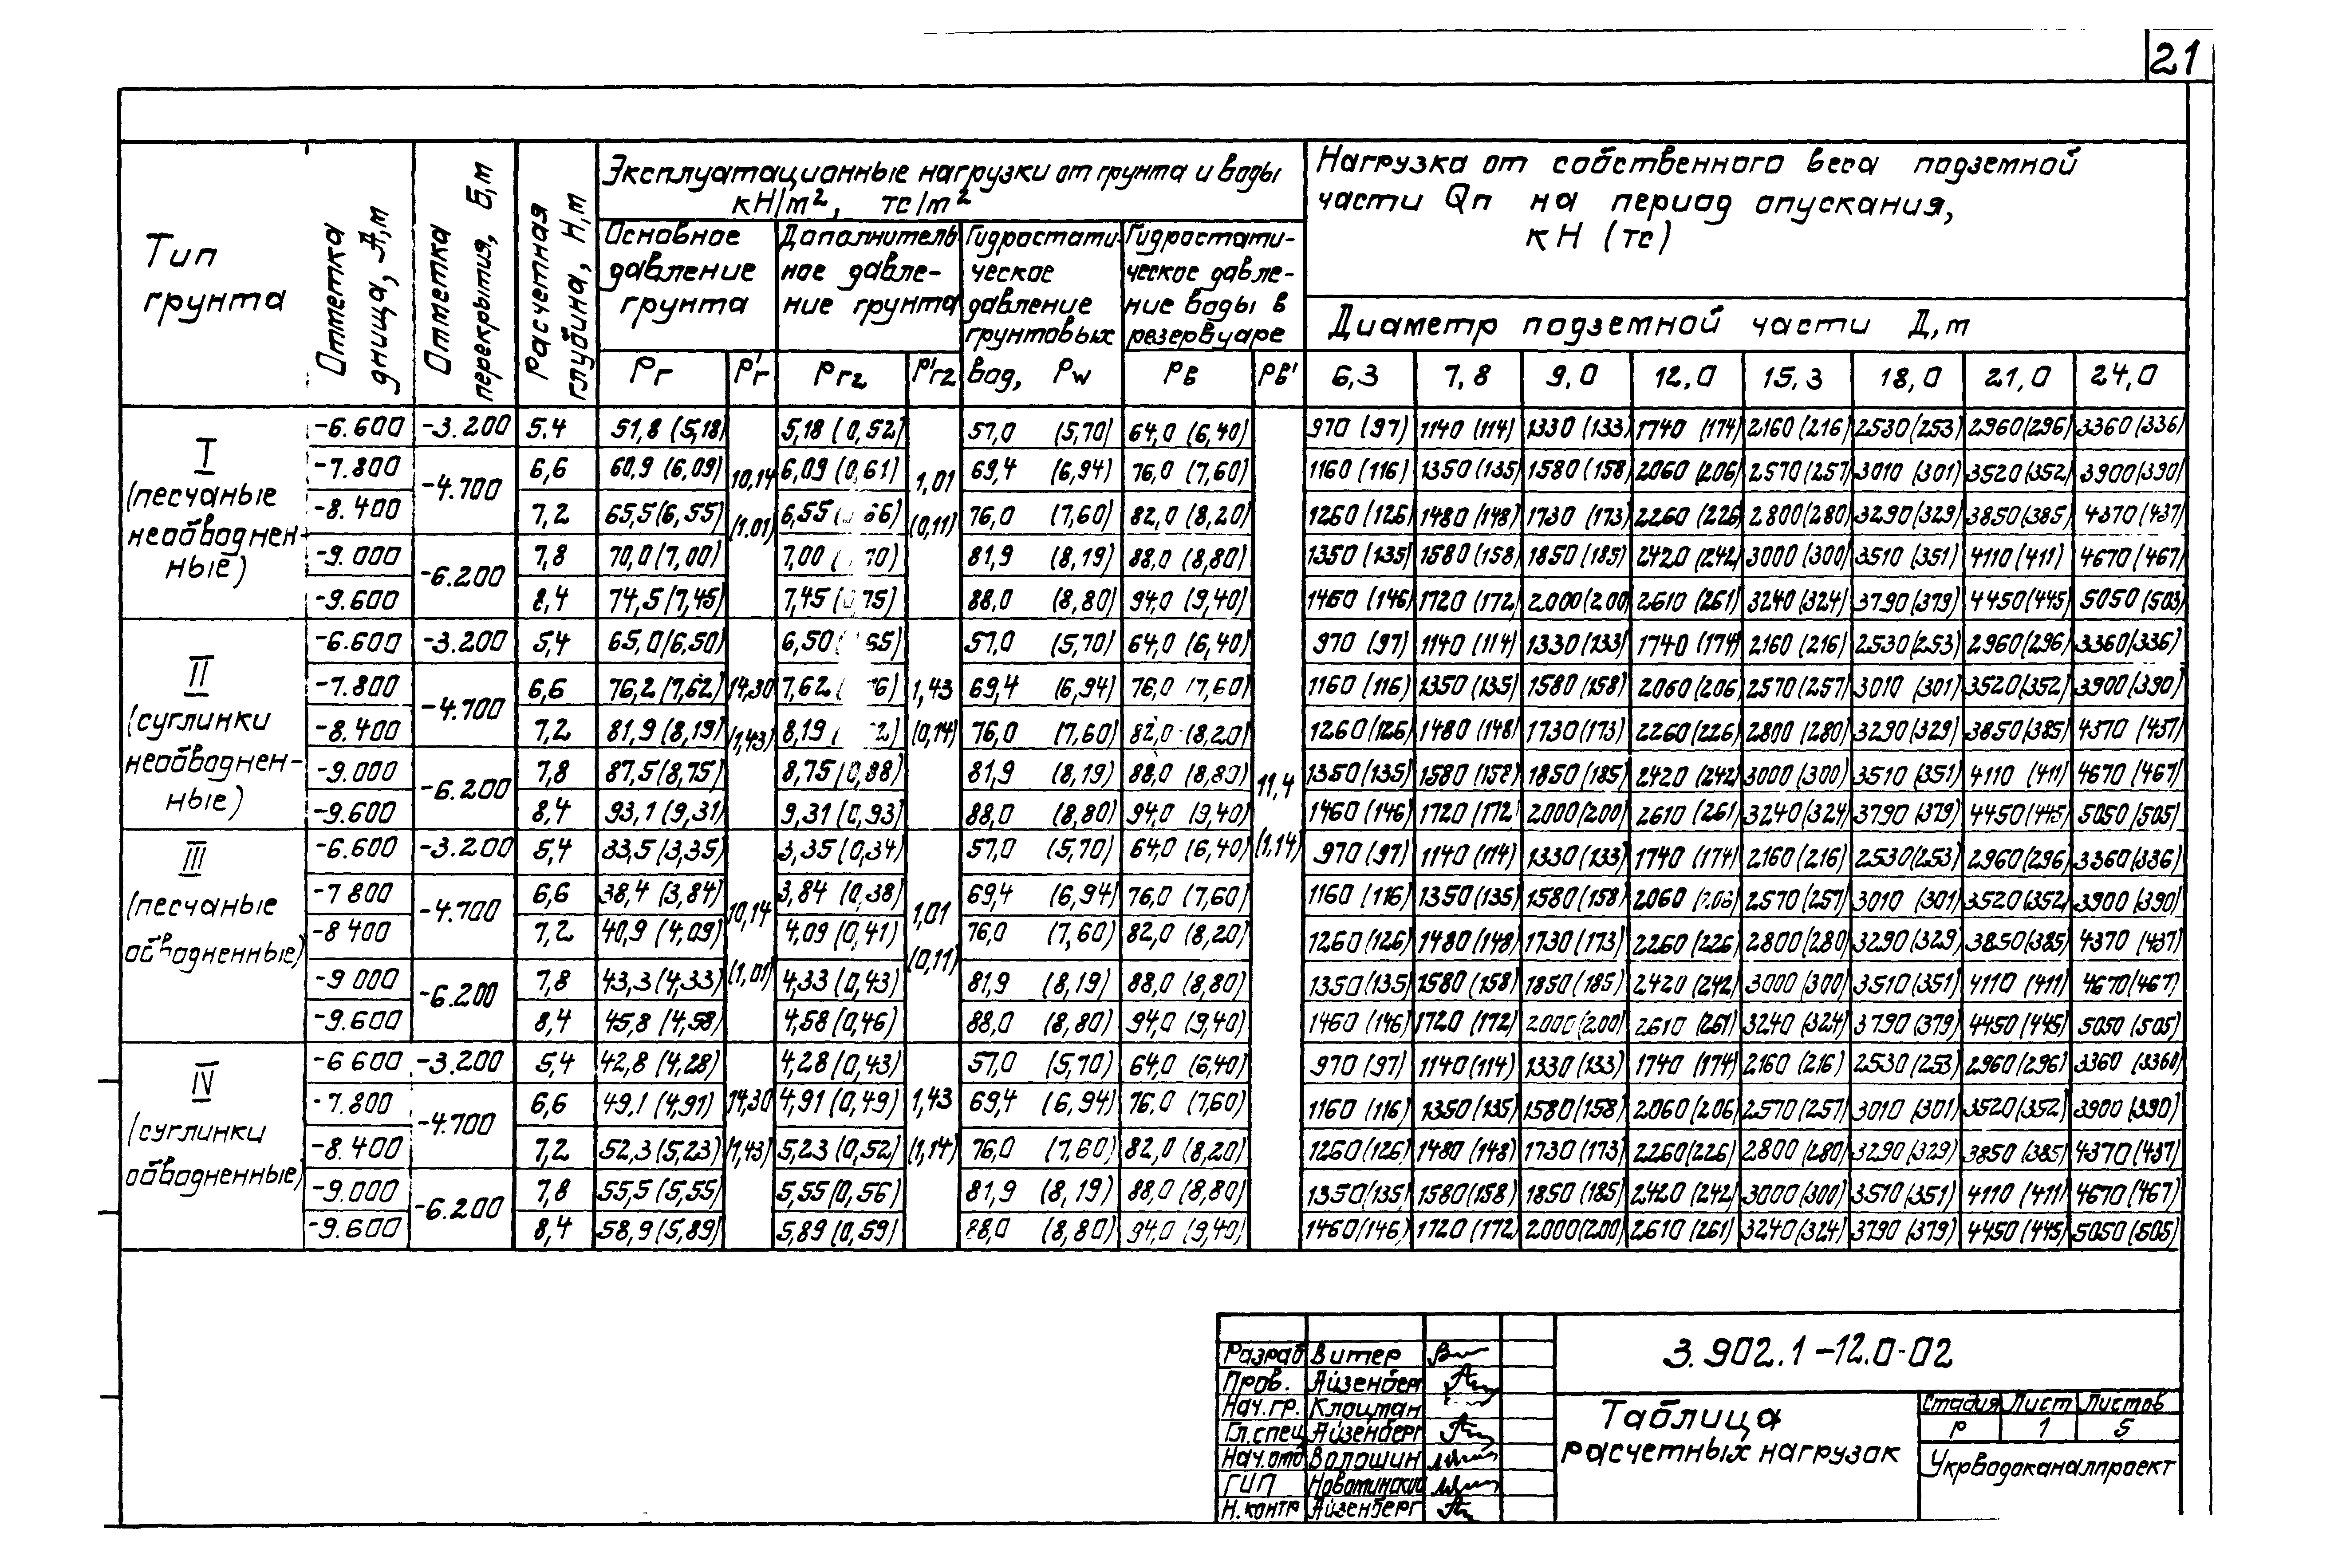 21
Тип грунта
Отметка днища, А,м
Отметка перекрытия, Б,м
Расчетная глубина, Н,м
Эксплуатационные нагрузки от грунта и воды кН/м², тс/м²
Нагрузка от собственного веса подземной
части Qп на период опускания,
кН (тс)
Основное давление грунта
Дополнительное давление грунта
Гидростатическое давление грунтовых вод, Pw
Гидростатическое давление воды в резервуаре
Диаметр подземной части Д,м
Pг P'г Pг2 P'г2 Pв Pв' 6,3 7,8 9,0 12,0 15,3 18,0 21,0 24,0
I
(песчаные
необводнен-
ные)
-6.600 -3.200 5.4 51,8 (5,18) 5,18 (0,52) 57,0 (5,70) 64,0 (6,40) 970 (97) 1140 (114) 1330 (133) 1740 (174) 2160 (216) 2530 (253) 2960 (296) 3360 (336)
-7.800 -4.700 6,6 60,9 (6,09) 10,14 6,09 (0,61) 1,01 69,4 (6,94) 76,0 (7,60) 1160 (116) 1350 (135) 1580 (158 2060 (206) 2570 (257 3010 (301) 3520 (352) 3900 (390)
-8.400 7,2 65,5 (6,55) (1.01) 6,55 66) (0,11) 76,0 (7,60) 82,0 (8,20) 1260 (126 1480 (148) 1730 (173) 2260 (226 2800 (280) 3290 (329) 3850 (385) 4370 (437)
-9.000 -6.200 7,8 70,0 (7,00) 7,00 ( 70) 81,9 (8,19) 88,0 (8,80) 1350 (135) 1580 (158 1850 (185) 2420 (242) 3000 (300) 3510 (351) 4110 (411) 4670 (467)
-9.600 8,4 74,5 (7,45) 7,45 (0,75) 88,0 (8,80) 94,0 (9,40) 1460 (146) 1720 (172, 2000 (200 2610 (261) 3240 (324) 3790 (379) 4450 (445) 5050 (503)
II
(суглинки
необводнен-
ные)
-6.600 -3.200 5,4 65,0 (6,50) 6,50 65) 57,0 (5,70) 64,0 (6,40) 970 (97) 1140 (114) 1330 (133) 1740 (174) 2160 (216) 2530 (253) 2960 (296) 3360 (336)
-7.800 -4.700 6,6 76,2 (7,62) 14,30 7,62 ( 76) 1,43 69,4 (6,94) 76,0 (7,60) 1160 (116) 1350 (135) 1580 (158) 2060 (206) 2570 (257) 3010 (301) 3520 (352) 3900 (390)
-8.400 7,2 81,9 (8,19) (1,43) 8,19 ( 2) (0,14) 76,0 (7,60) 82,0 (8,20) 1260 (126) 1480 (148) 1730 (173) 2260 (226) 2800 (280) 3290 (329) 3850 (385) 4370 (437)
-9.000 -6.200 7,8 87,5 (8,75) 8,75 (0,88) 81,9 (8,19) 88,0 (8,80) 11,4 1350 (135) 1580 (158) 1850 (185) 2420 (242) 3000 (300) 3510 (351) 4110 (411) 4670 (467)
-9.600 8,4 93,1 (9,31) 9,31 (0,93) 88,0 (8,80) 94,0 (9,40) 1460 (146) 1720 (172) 2000 (200) 2610 (261) 3240 (324) 3790 (379) 4450 (445) 5050 (505)
III
(песчаные
обводненные)
-6.600 -3.200 5,4 33,5 (3,35) 3,35 (0,34) 57,0 (5,70) 64,0 (6,40) (1,14) 970 (97) 1140 (114) 1330 (133) 1740 (174) 2160 (216) 2530 (253) 2960 (296) 3360 (336)
-7 800 -4.700 6,6 38,4 (3,84) 10,14 3,84 (0,38) 1,01 69,4 (6,94) 76,0 (7,60) 1160 (116) 1350 (135) 1580 (158) 2060 (206) 2570 (257) 3010 (301) 3520 (352) 3900 (390)
-8 400 7,2 40,9 (4,09) (1,01) 4,09 (0,41) (0,11) 76,0 (7,60) 82,0 (8,20) 1260 (126) 1480 (148) 1730 (173) 2260 (226) 2800 (280) 3290 (329) 3850 (385) 4370 (437)
-9 000 -6.200 7,8 43,3 (4,33) 4,33 (0,43) 81,9 (8,19) 88,0 (8,80) 1350 (135) 1580 (158) 1850 (185) 2420 (242) 3000 (300) 3510 (351) 4110 (411) 4670 (467)
-9.600 8,4 45,8 (4,58) 4,58 (0,46) 88,0 (8,80) 94,0 (9,40) 1460 (146) 1720 (172) 2000 (200) 2610 (261) 3240 (324) 3790 (379) 4450 (445) 5050 (505)
IV
(суглинки
обводненные)
-6 600 -3.200 5,4 42,8 (4,28) 4,28 (0,43) 57,0 (5,70) 64,0 (6,40) 970 (97) 1140 (114) 1330 (133) 1740 (174) 2160 (216) 2530 (253) 2960 (296) 3360 (3360)
-7.800 -4.700 6,6 49,1 (4,91) 14,30 4,91 (0,49) 1,43 69,4 (6,94) 76,0 (7,60) 1160 (116) 1350 (135) 1580 (158) 2060 (206) 2570 (257) 3010 (301) 3520 (352) 3900 (390)
-8.400 7,2 52,3 (5,23) (1,43) 5,23 (0,52) (1,14) 76,0 (7,60) 82,0 (8,20) 1260 (126) 1480 (148) 1730 (173) 2260 (226) 2800 (280) 3290 (329) 3850 (385) 4370 (437)
-9.000 -6.200 7,8 55,5 (5,55) 5,55 (0,56) 81,9 (8,19) 88,0 (8,80) 1350 (135) 1580 (158) 1850 (185) 2420 (242) 3000 (300) 3510 (351) 4110 (411) 4670 (467)
-9.600 8,4 58,9 (5,89) 5,89 (0,59) 88,0 (8,80) 94,0 (9,40) 1460 (146) 1720 (172) 2000 (200) 2610 (261) 3240 (324) 3790 (379) 4450 (445) 5050 (505)
Разраб Витер
Пров. Айзенберг
Нач.гр. Клоцман
Гл.спец Айзенберг
Нач.отд Волошин
ГИП Новоминский
Н.контр Айзенберг
3.902.1-12.0-02
Таблица
расчетных нагрузок
Стадия Лист Листов
Р 1 5
Укрводоканалпроект